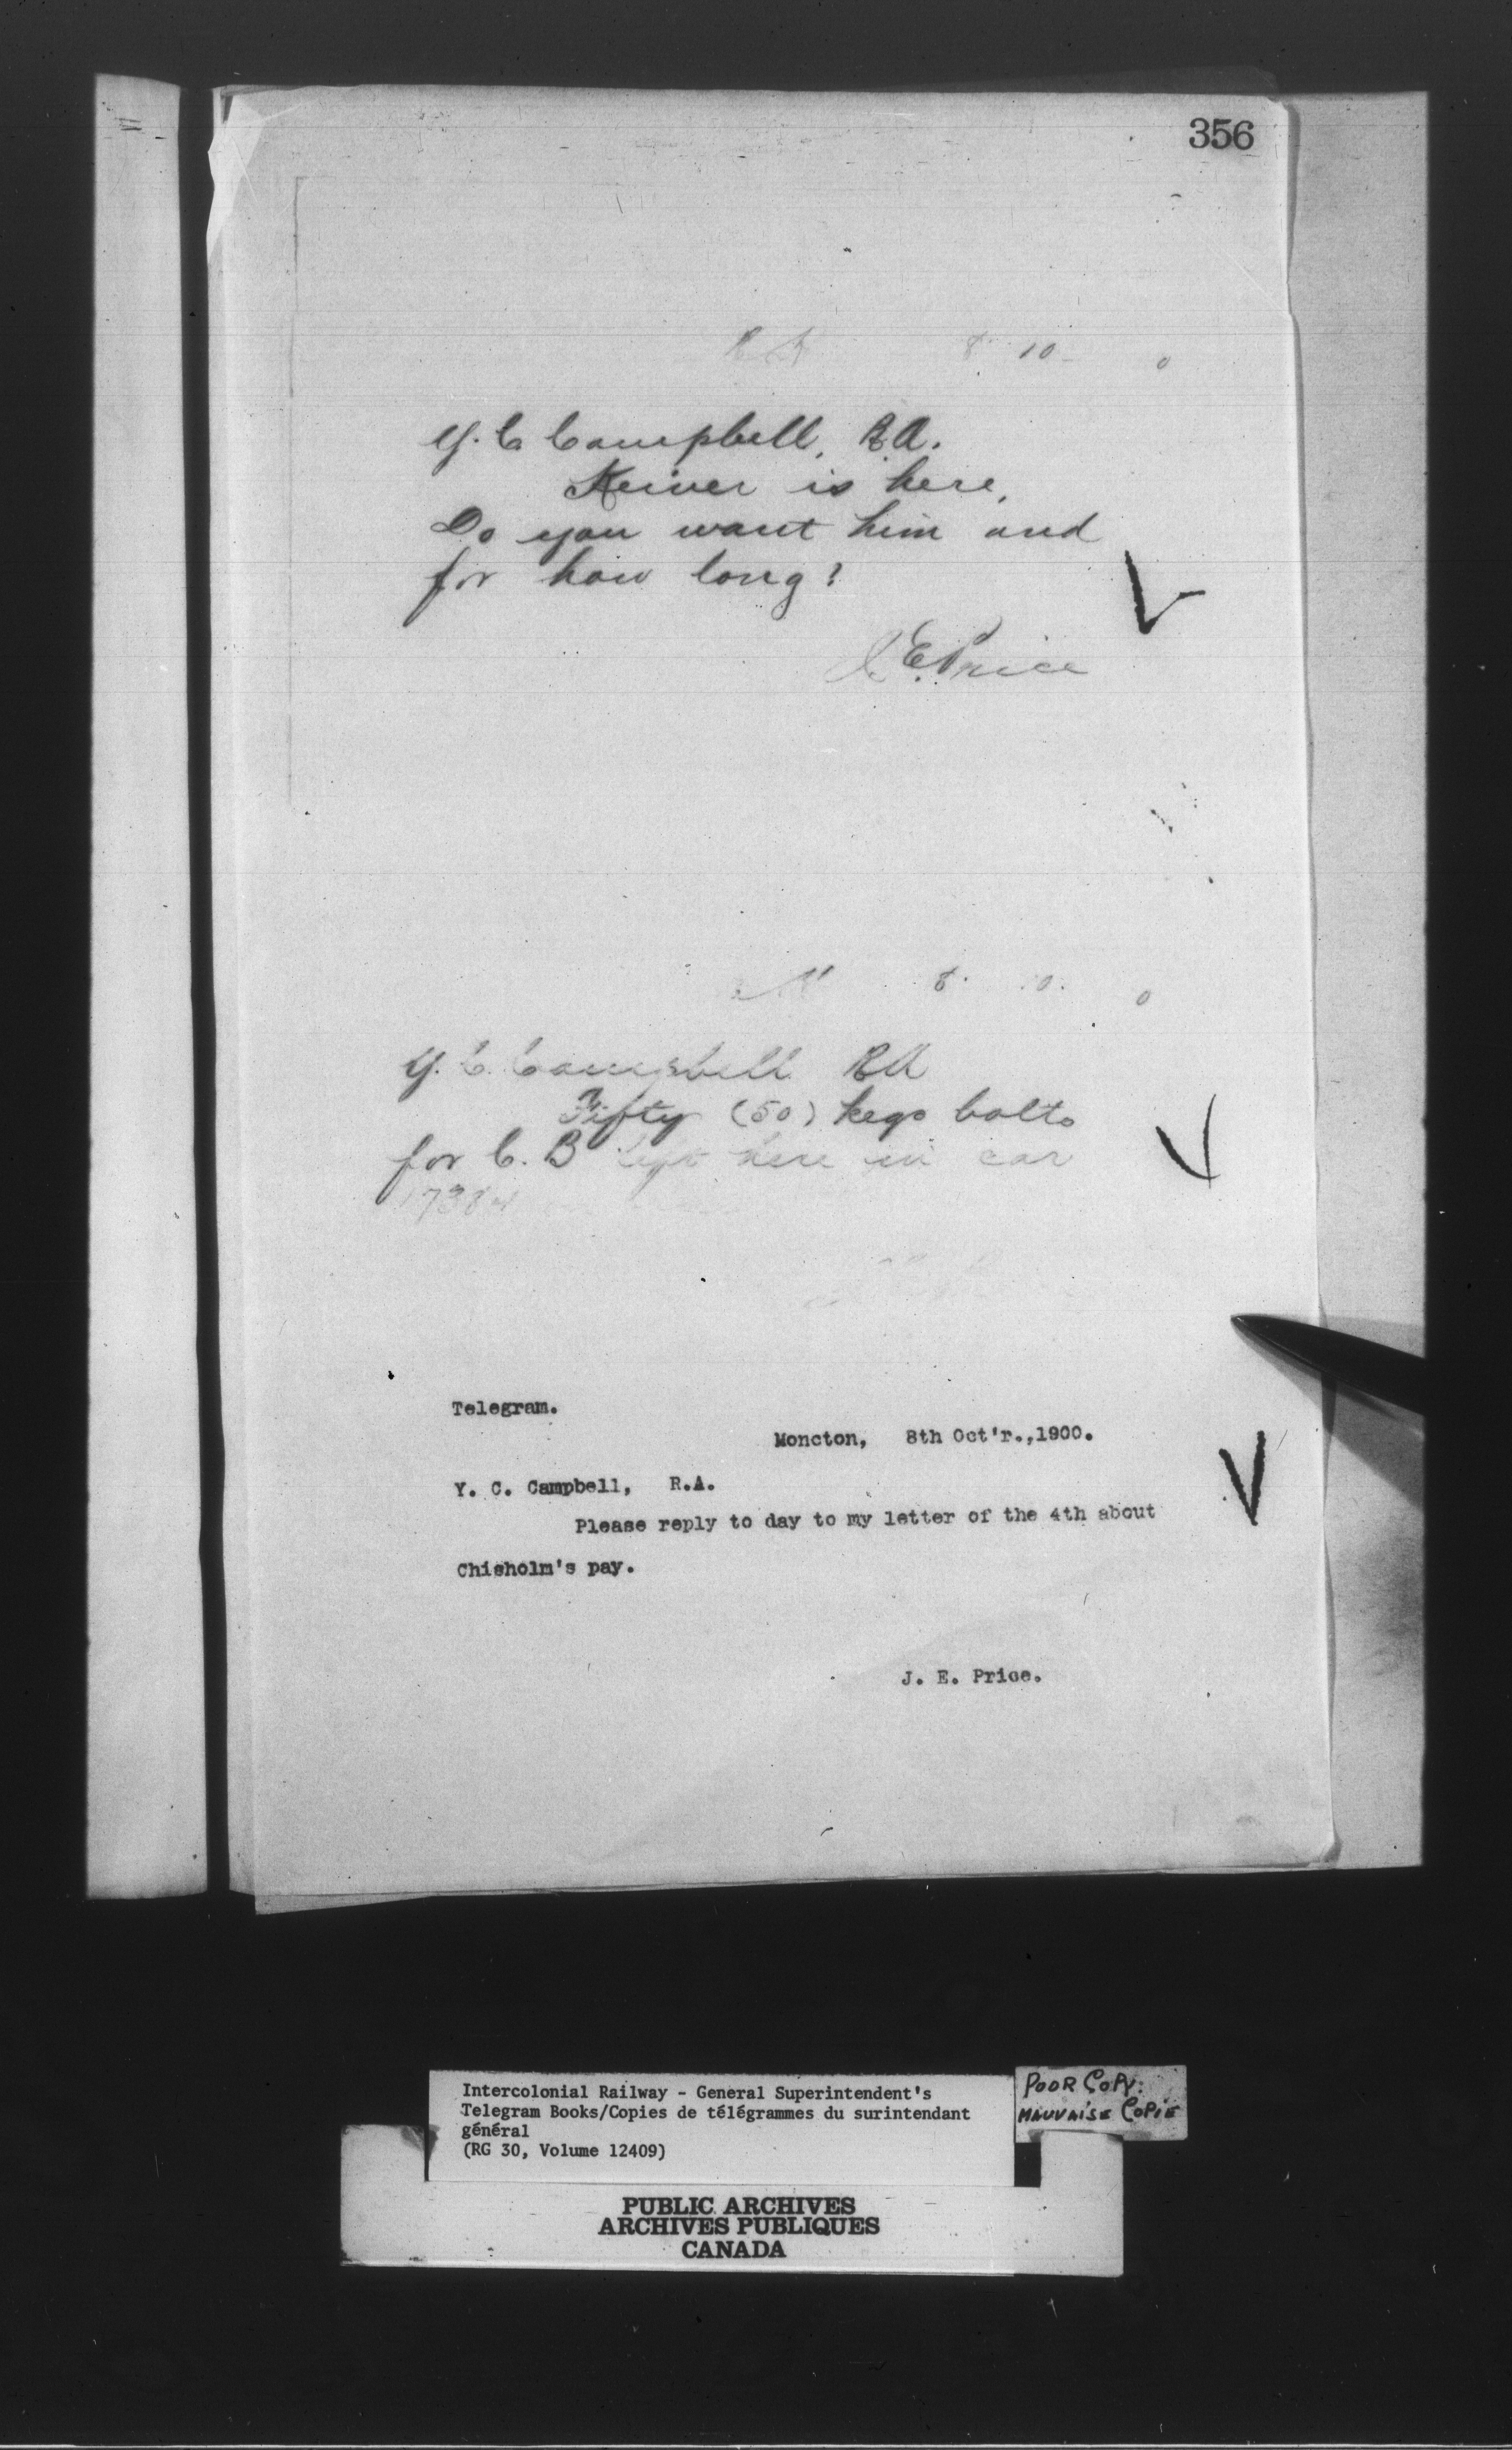 356
8 10 0
Y. C Campbell, R.A.
Keiver is here,
Do you want him and
for how long?
J. E. Price
8. 10. 0
Y. C. Campbell RA
Fifty (50) kegs bolts
for C. B left here in car
Telegram.
Moncton, 8th Oct'r.,1900.
Y. C. Campbell, R.A.
Please reply to day to my letter of the 4th about
Chisholm's pay.
J. E. Price.
Intercolonial Railway - General Superintendent's
Telegram Books/Copies de télégrammes du surintendant
général
(RG 30, Volume 12409)
POOR COPY.
MAUVAISE COPIE
PUBLIC ARCHIVES
ARCHIVES PUBLIQUES
CANADA